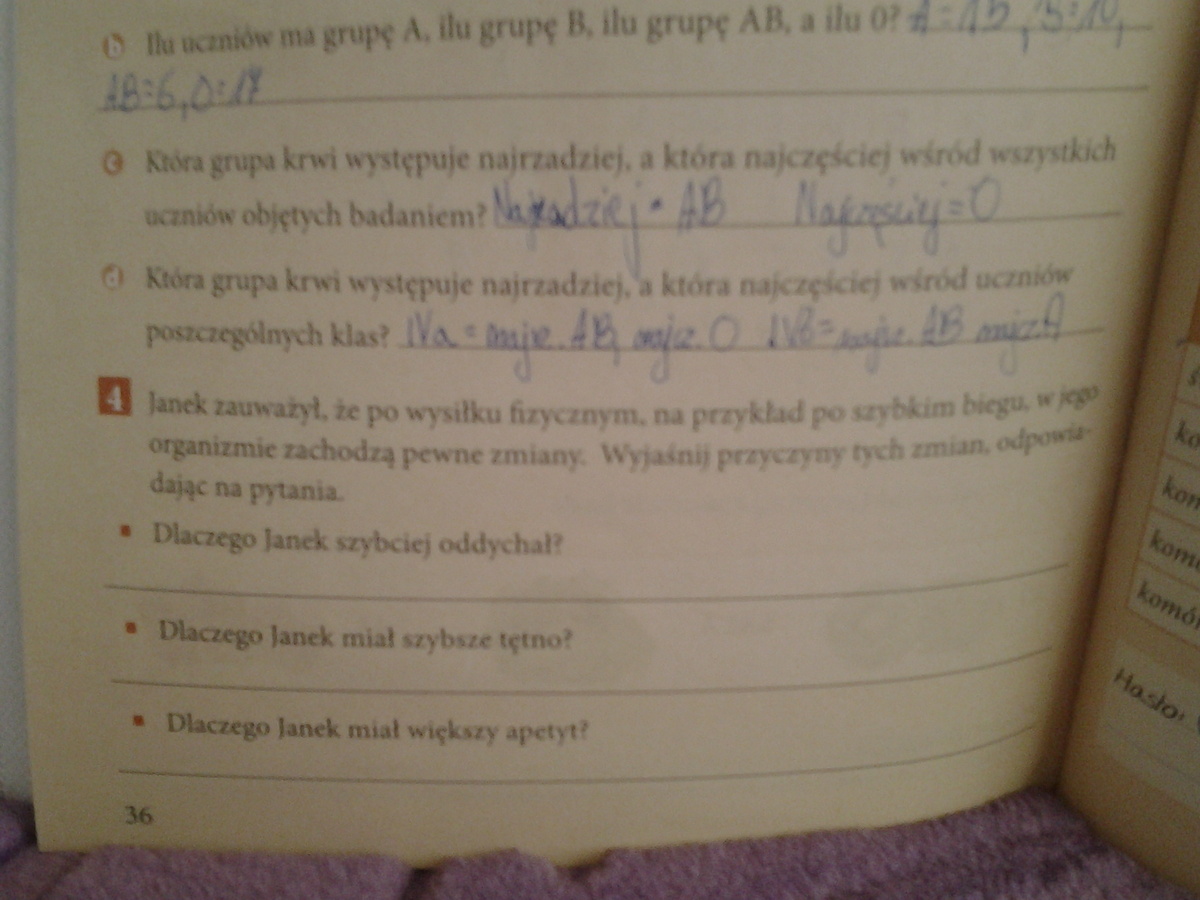 b Ilu uczniów ma grupę A, ilu grupę B, ilu grupę AB, a ilu 0? A=15, B=10,
AB=6, O=17
c Która grupa krwi występuje najrzadziej, a która najczęściej wśród wszystkich
uczniów objętych badaniem? AB Najczęściej=O
d Która grupa krwi występuje najrzadziej, a która najczęściej wśród uczniów
poszczególnych klas? IVa = AB, O IVB= AB
4 Janek zauważył, że po wysiłku fizycznym, na przykład po szybkim biegu, w jego
organizmie zachodzą pewne zmiany. Wyjaśnij przyczyny tych zmian, odpowia-
dając na pytania.
▪ Dlaczego Janek szybciej oddychał?
▪ Dlaczego Janek miał szybsze tętno?
▪ Dlaczego Janek miał większy apetyt?
36
ko
kom
komó
komór
Hasło: